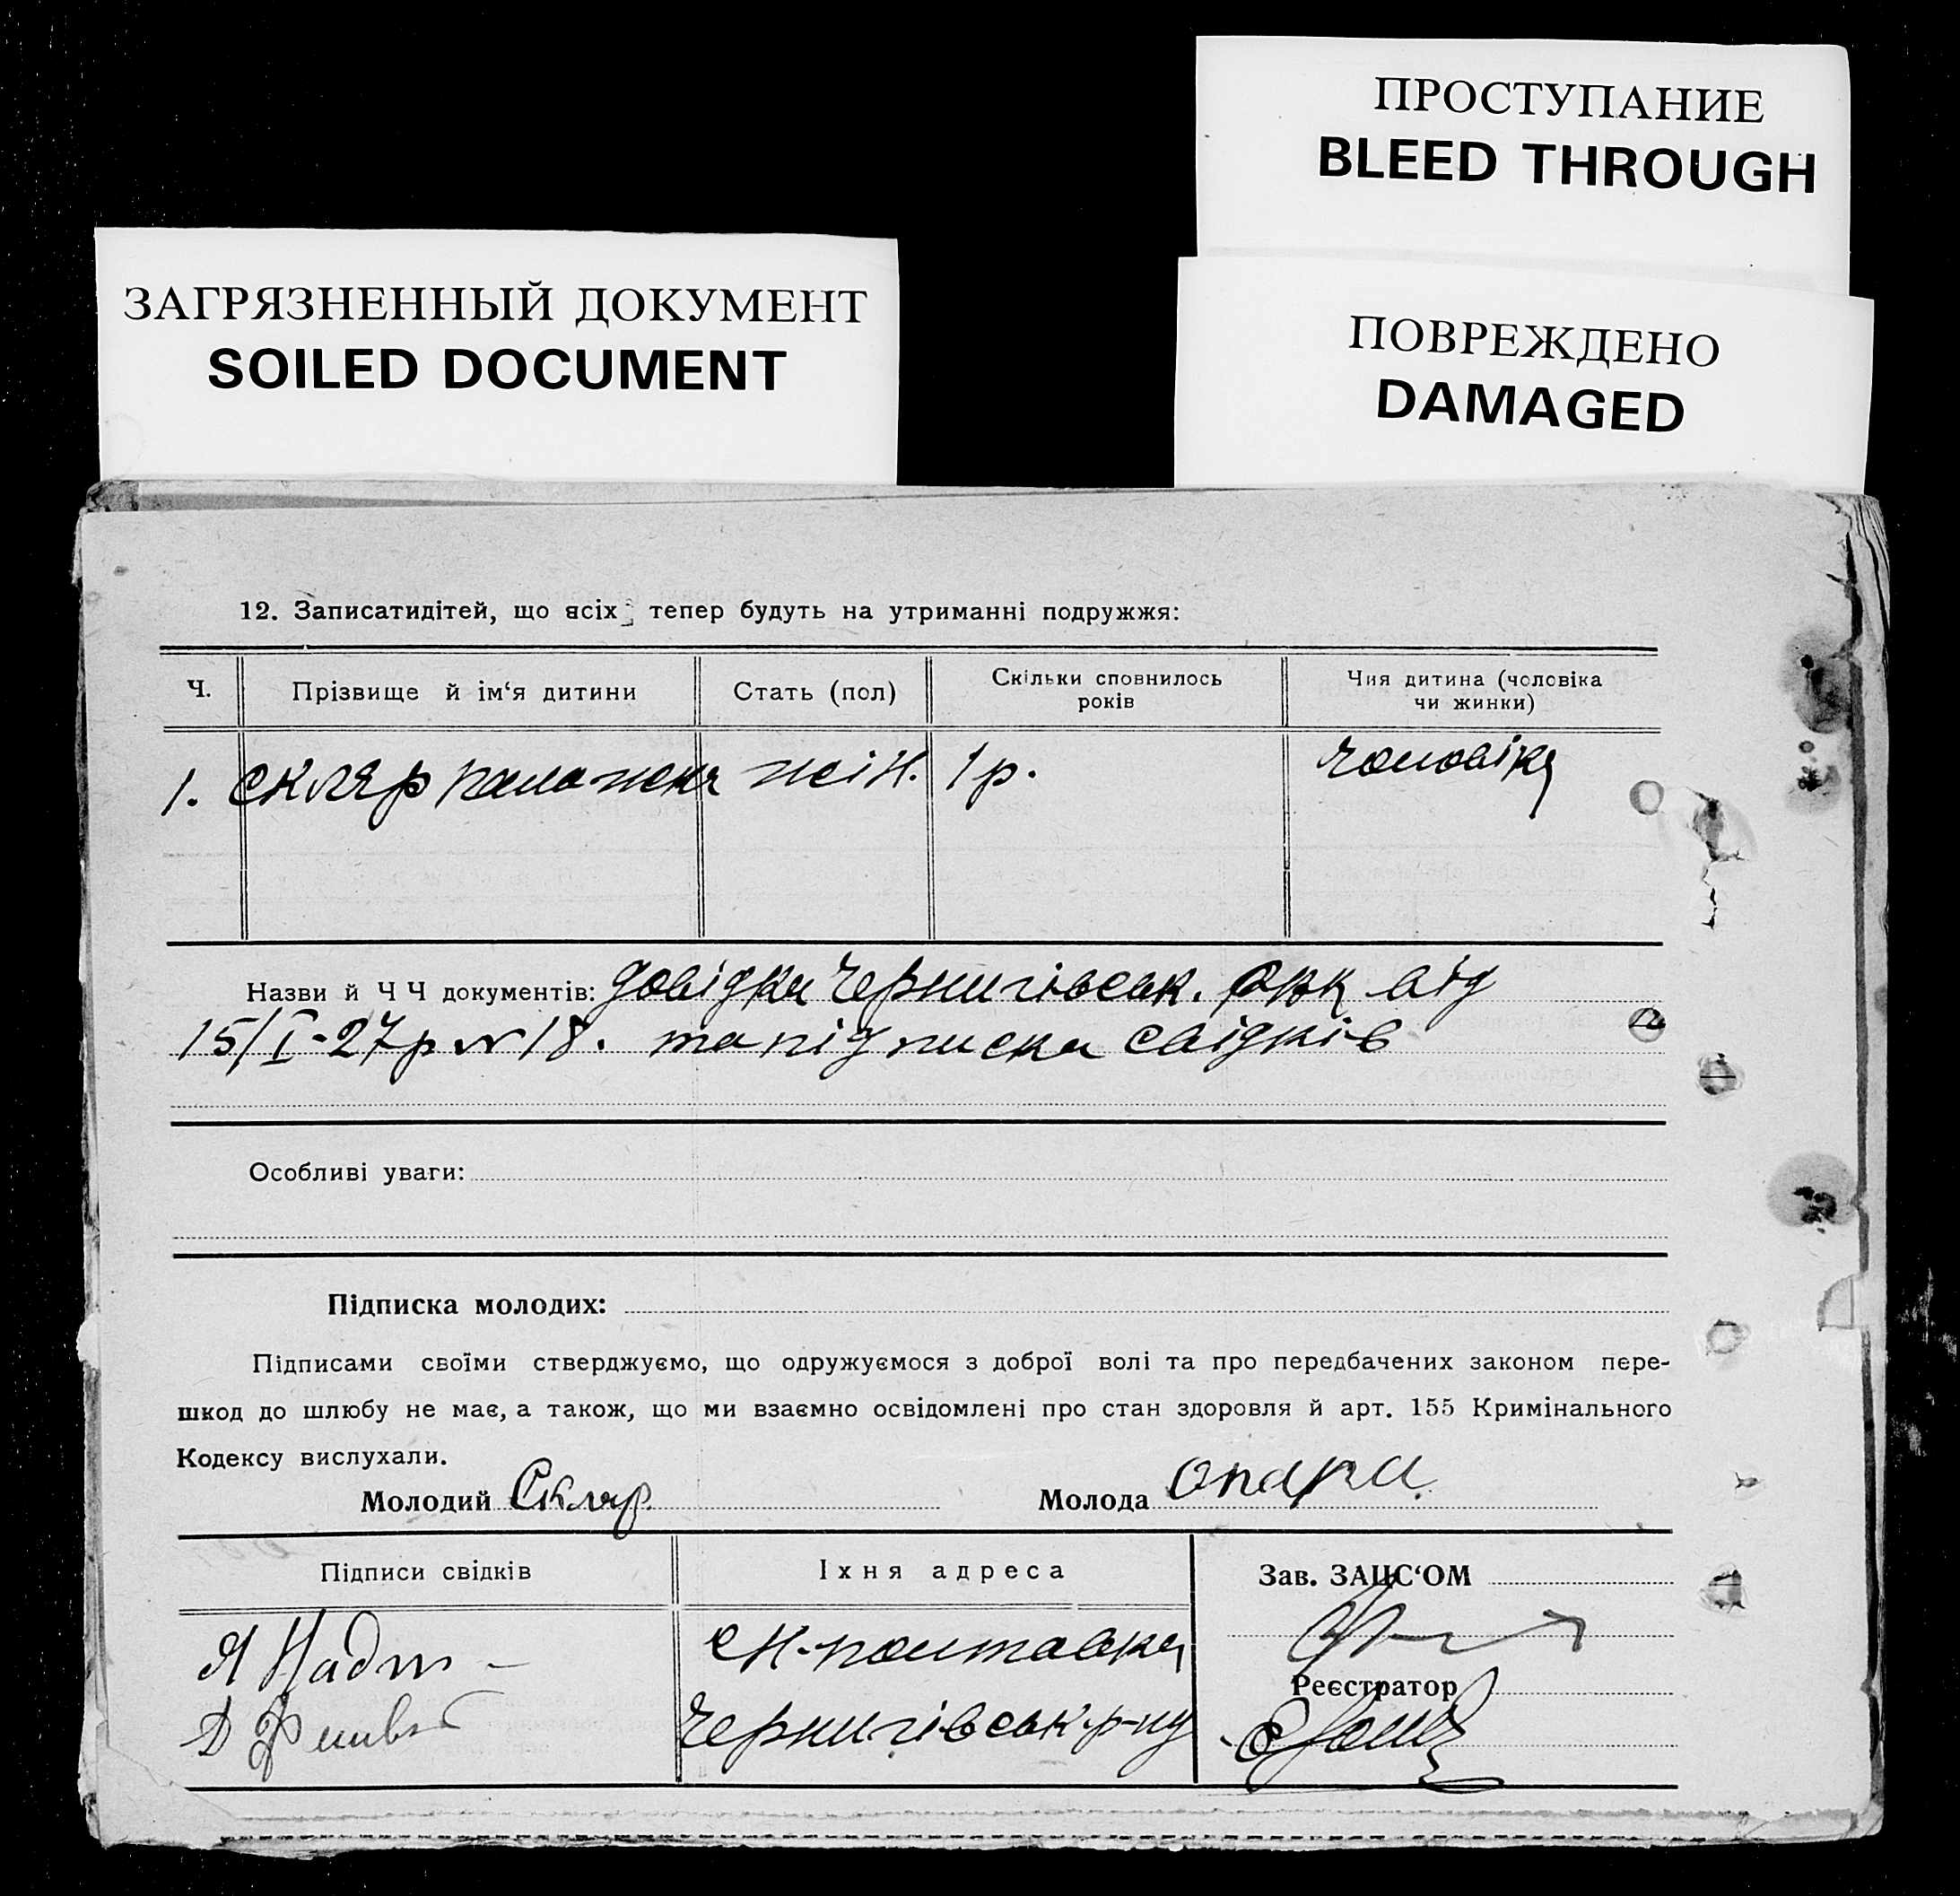 ПРОСТУПАНИЕ
BLEED THROUGH
ЗАГРЯЗНЕННЫЙ ДОКУМЕНТ
SOILED DOCUMENT
ПОВРЕЖДЕНО
DAMAGED
12. Записатидітей, що всіх тепер будуть на утриманні подружжя:
Ч. Прізвище й ім‘я дитини Стать (пол) Скільки сповнилось років Чия дитина (чоловіка чи жинки)
1. Скляр Палажка жін. 1 р. чоловіка
Назви й Ч Ч документів: довідки Чернигівськ. від
15/I-27р № 18. та підписка свідків
Особливі уваги:
Підписка молодих:
Підписами своїми стверджуємо, що одружуємося з доброї волі та про передбачених законом пере-
шкод до шлюбу не має, а також, що ми взаємно освідомлені про стан здоровля й арт. 155 Кримінального
Кодексу вислухали.
Молодий Скляр Молода Опара
Підписи свідків Їхня адреса Зав. ЗАЦС‘ОМ
Полтавка
Реєстратор
Чернигівськ р-ну